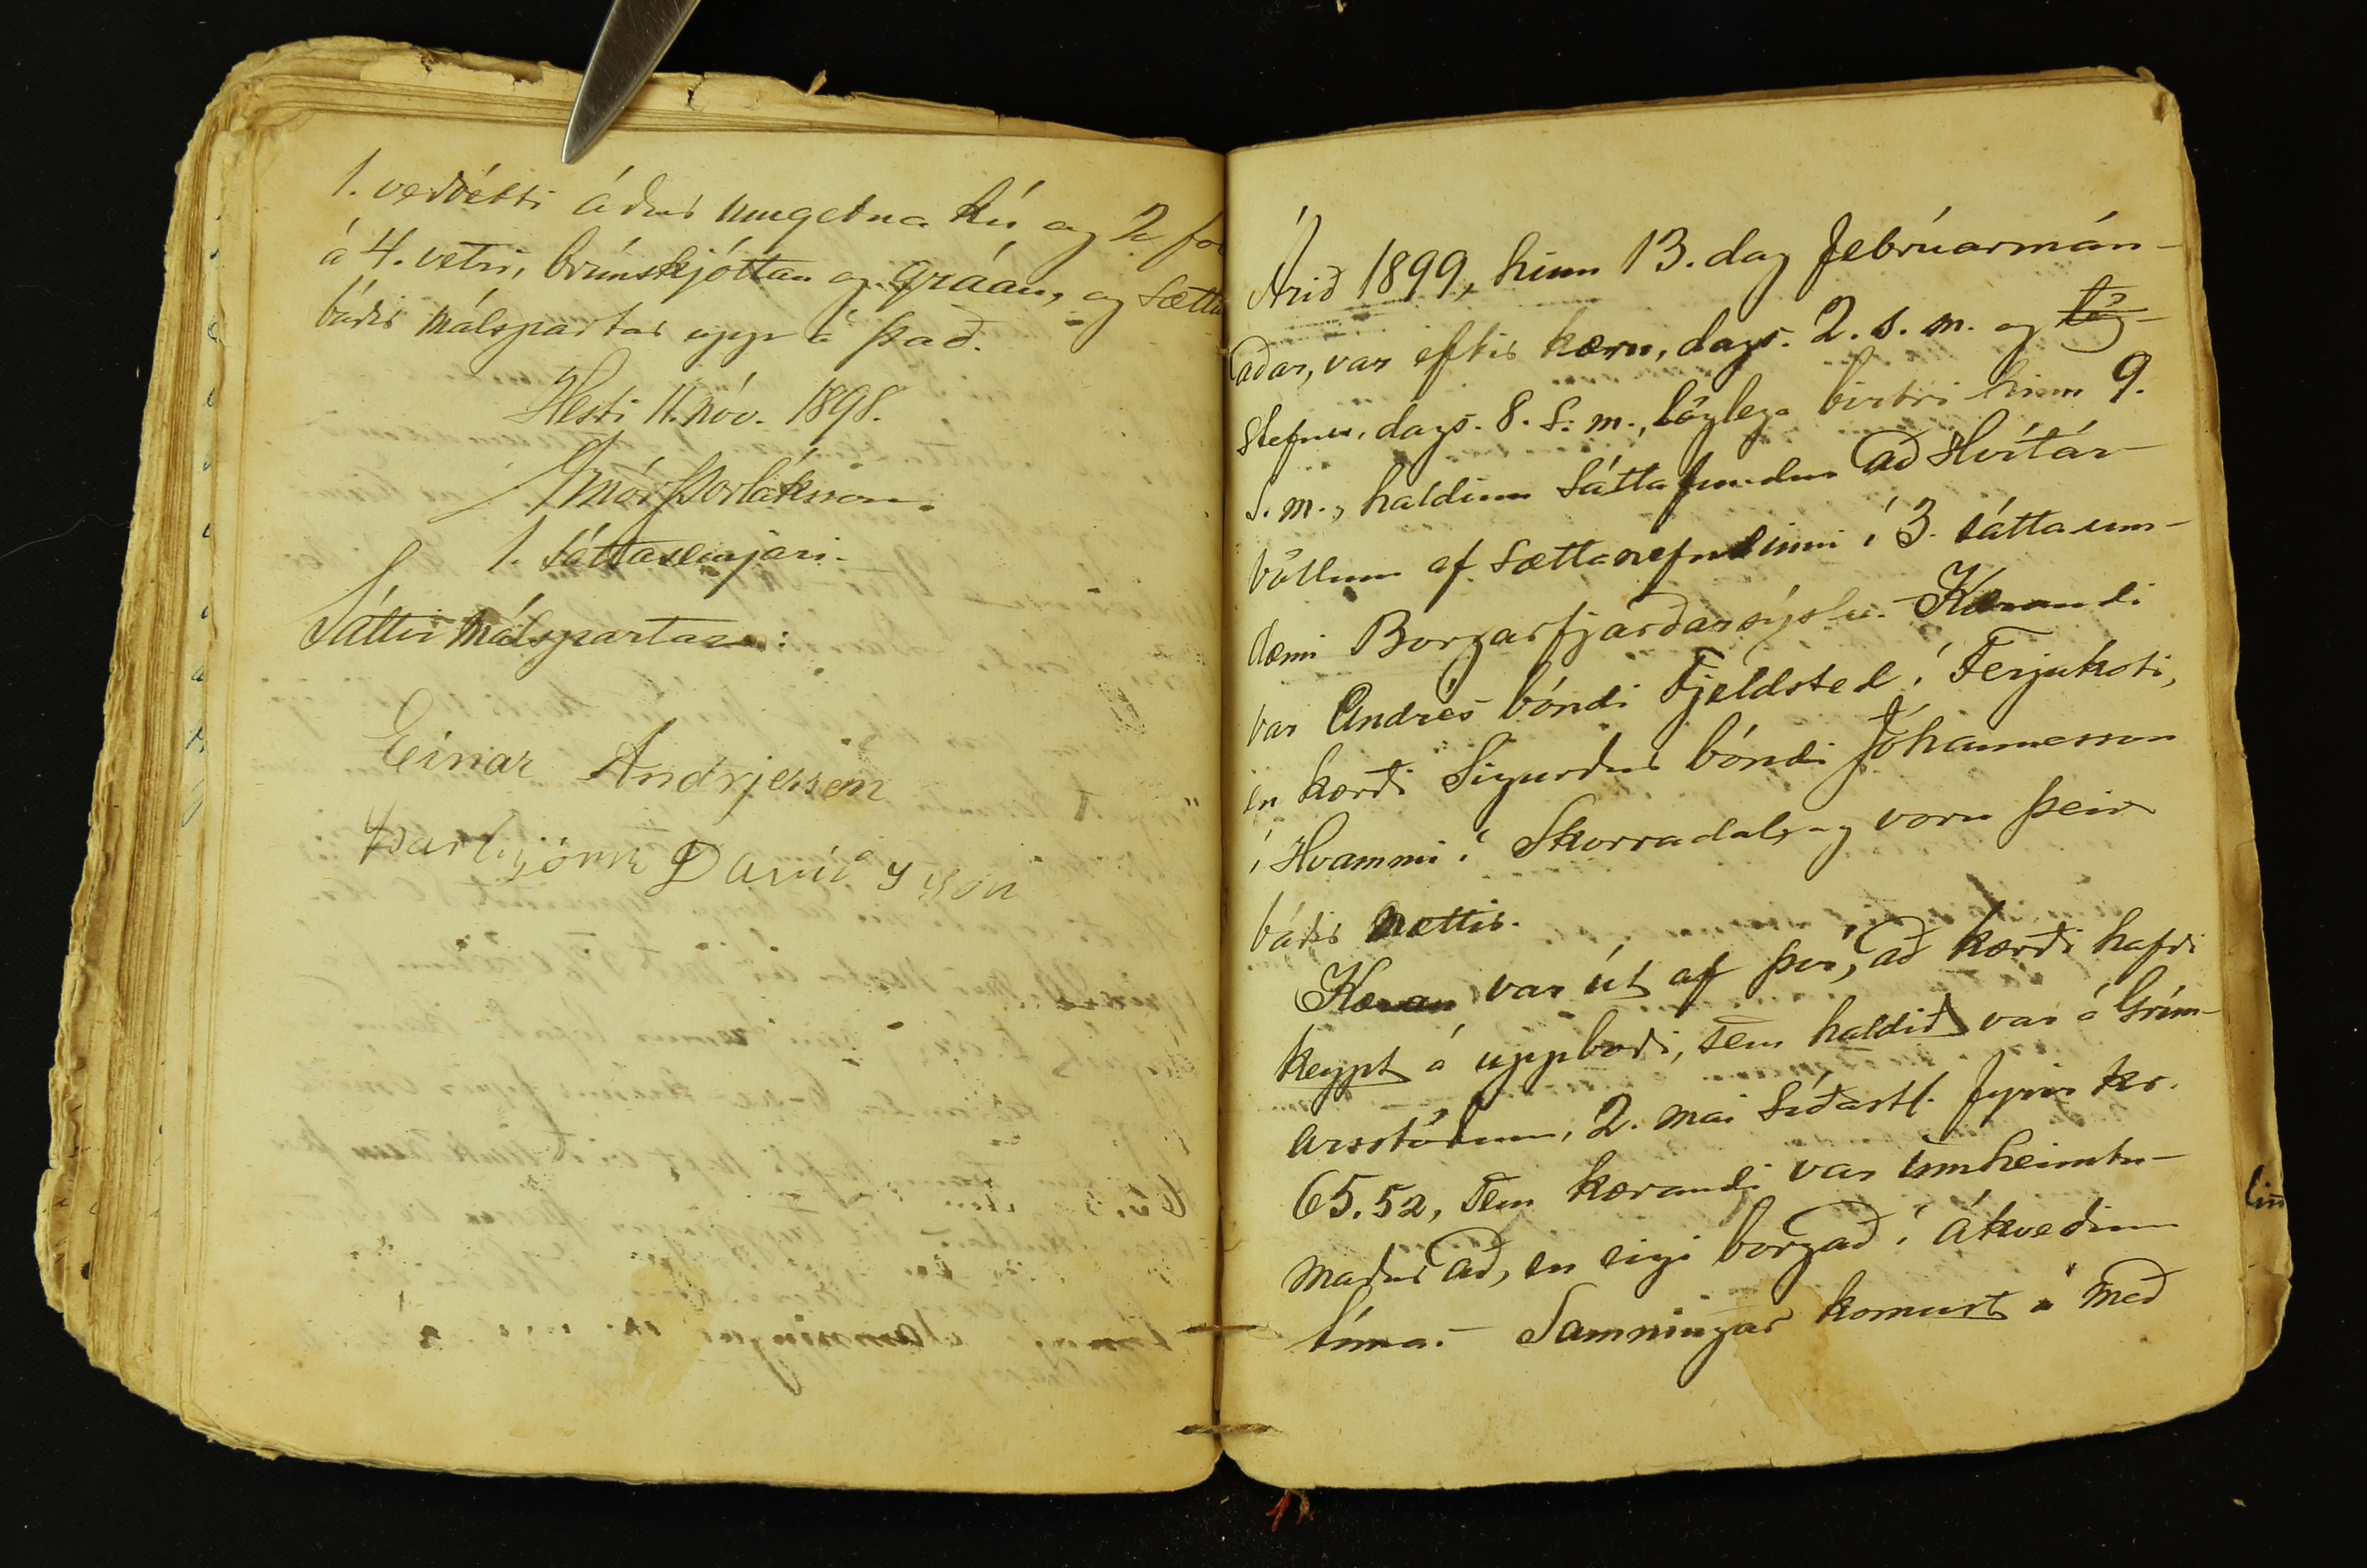 1. veðrétti áður umgetna kú og 2 fo
á 4. vetri, brúnskjóttan og gráan, og sættu
báðir málspartar upp á það.
Hesti 11. nóv. 1898.
Arnór Þorláksson.
1. sáttasemjari.
Sáttir málspartar:
Einar Andrjesson
Þorbjörn Davíðsson
Árið 1899, hinn 13. dag febrúarmán-
aðar, var eftir kæru, dags. 2. s. m. og lög-
stefnu, dags. 8. s. m., löglega birtri hinn 9.
s. m., haldinn sáttafundur að Hvítár-
völlum af sættanefndinni í 3. sáttaum-
dæmi Borgarfjarðarsýslu. Kærandi
var Andrés bóndi Fjeldsted í Ferjukoti,
en kærði Sigurður bóndi Jóhannesson
í Hvammi í Skorradal, og voru þeir
báðir mættir.
Kæran var út af því, að kærði hafði
keypt á uppboði, sem haldið var á Grím-
arsstöðum, 2. mai síðastl. fyrir kr.
65.52, sem kærandi var innheimtu-
maður að, en eigi borgað í ákveðinn
tíma. - Samningar komust á með